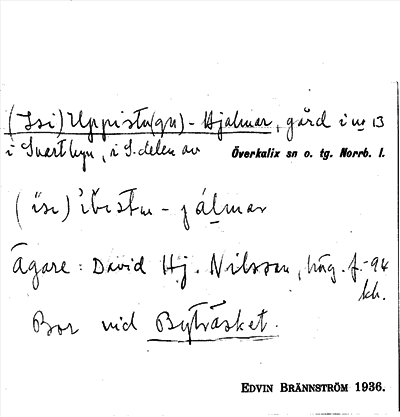 (Isi) Uppistu(gu)-Hjalmar, gård i nr 13
i Svartbyn, i S. delen av Överkalix sn o. tg. Norrb. l.
Ägare: David Hj. Nilsson, f. -94
Bor vid Byträsket.
EDVIN BRÄNNSTRÖM 1936.